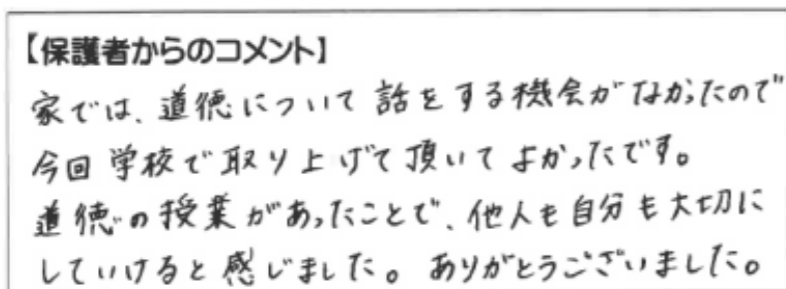 【保護者からのコメント】
家では、道徳について話をする機会がなかったので
今回学校で取り上げて頂いてよかったです。
道徳の授業があったことで、他人も自分も大切に
していけると感じました。ありがとうございました。